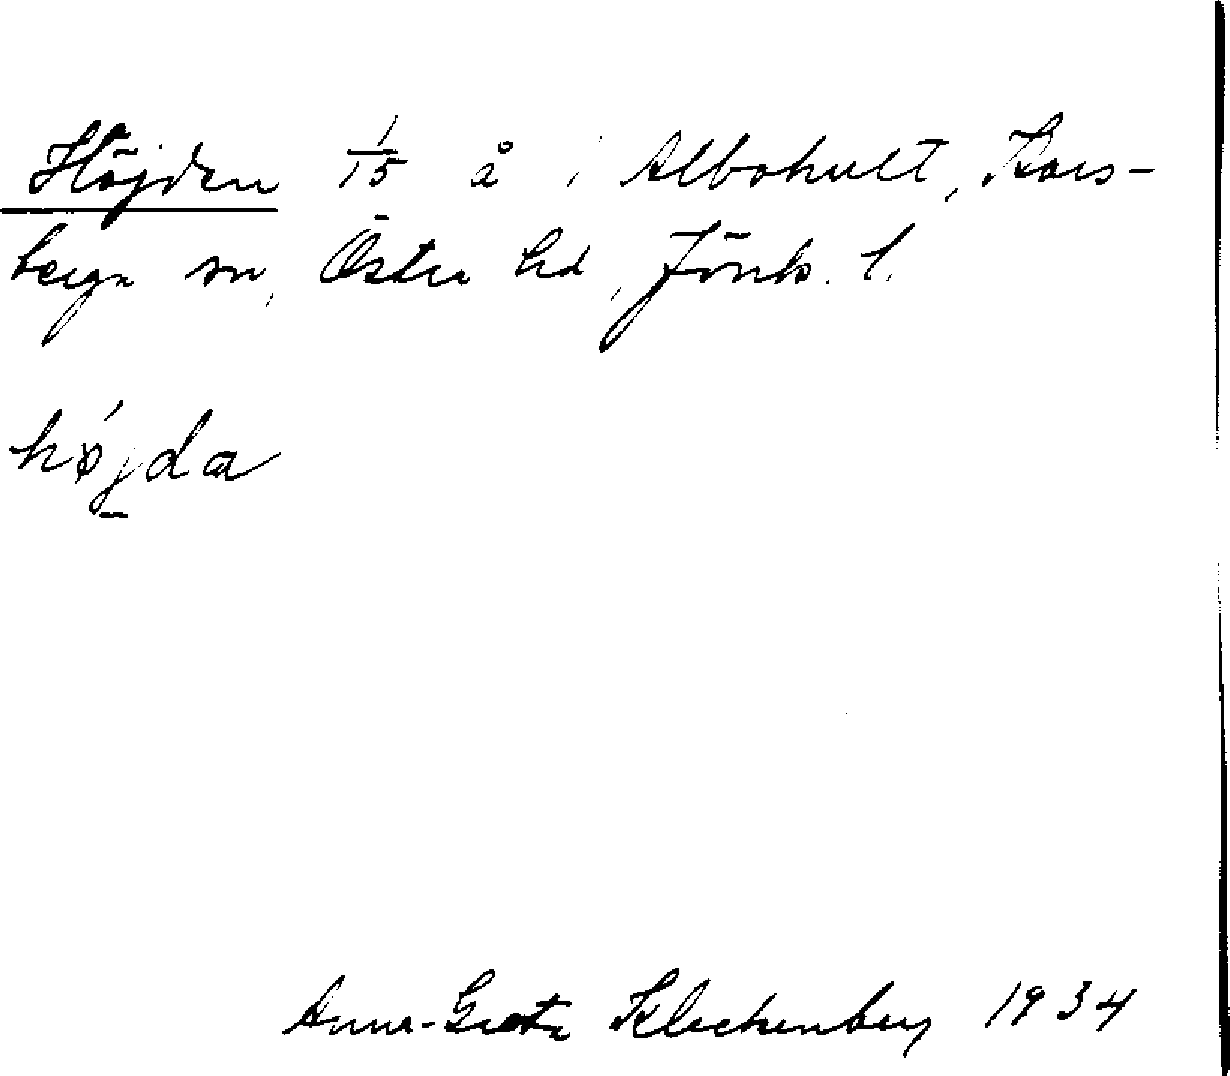 Höjden 1/15 å i Albohult, Kors-
berga sn, Östra hd, Jönk. l.
høj́da
Anna-Greta Kleckenberg 1934